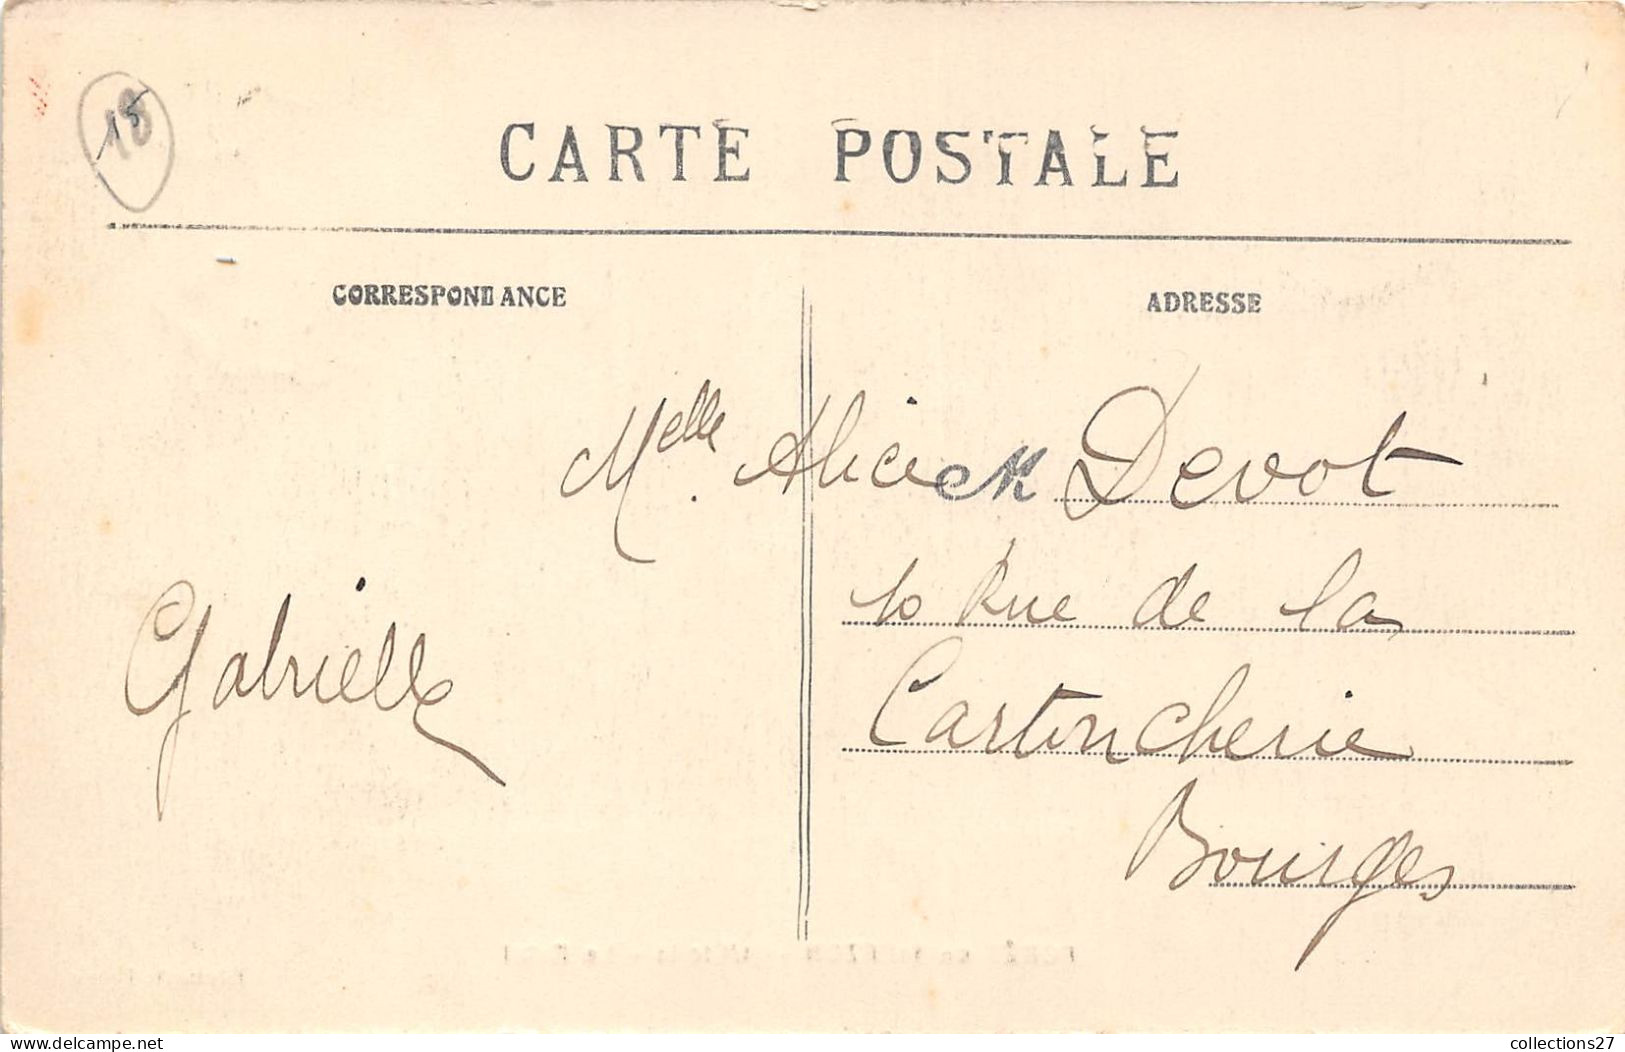 18
CARTE POSTALE
CORRESPONDANCE
ADRESSE
Melle. Alice Devot
10 Rue de la
Cartoncherie
Bourges
Gabrielle
delcampe.net
collections27